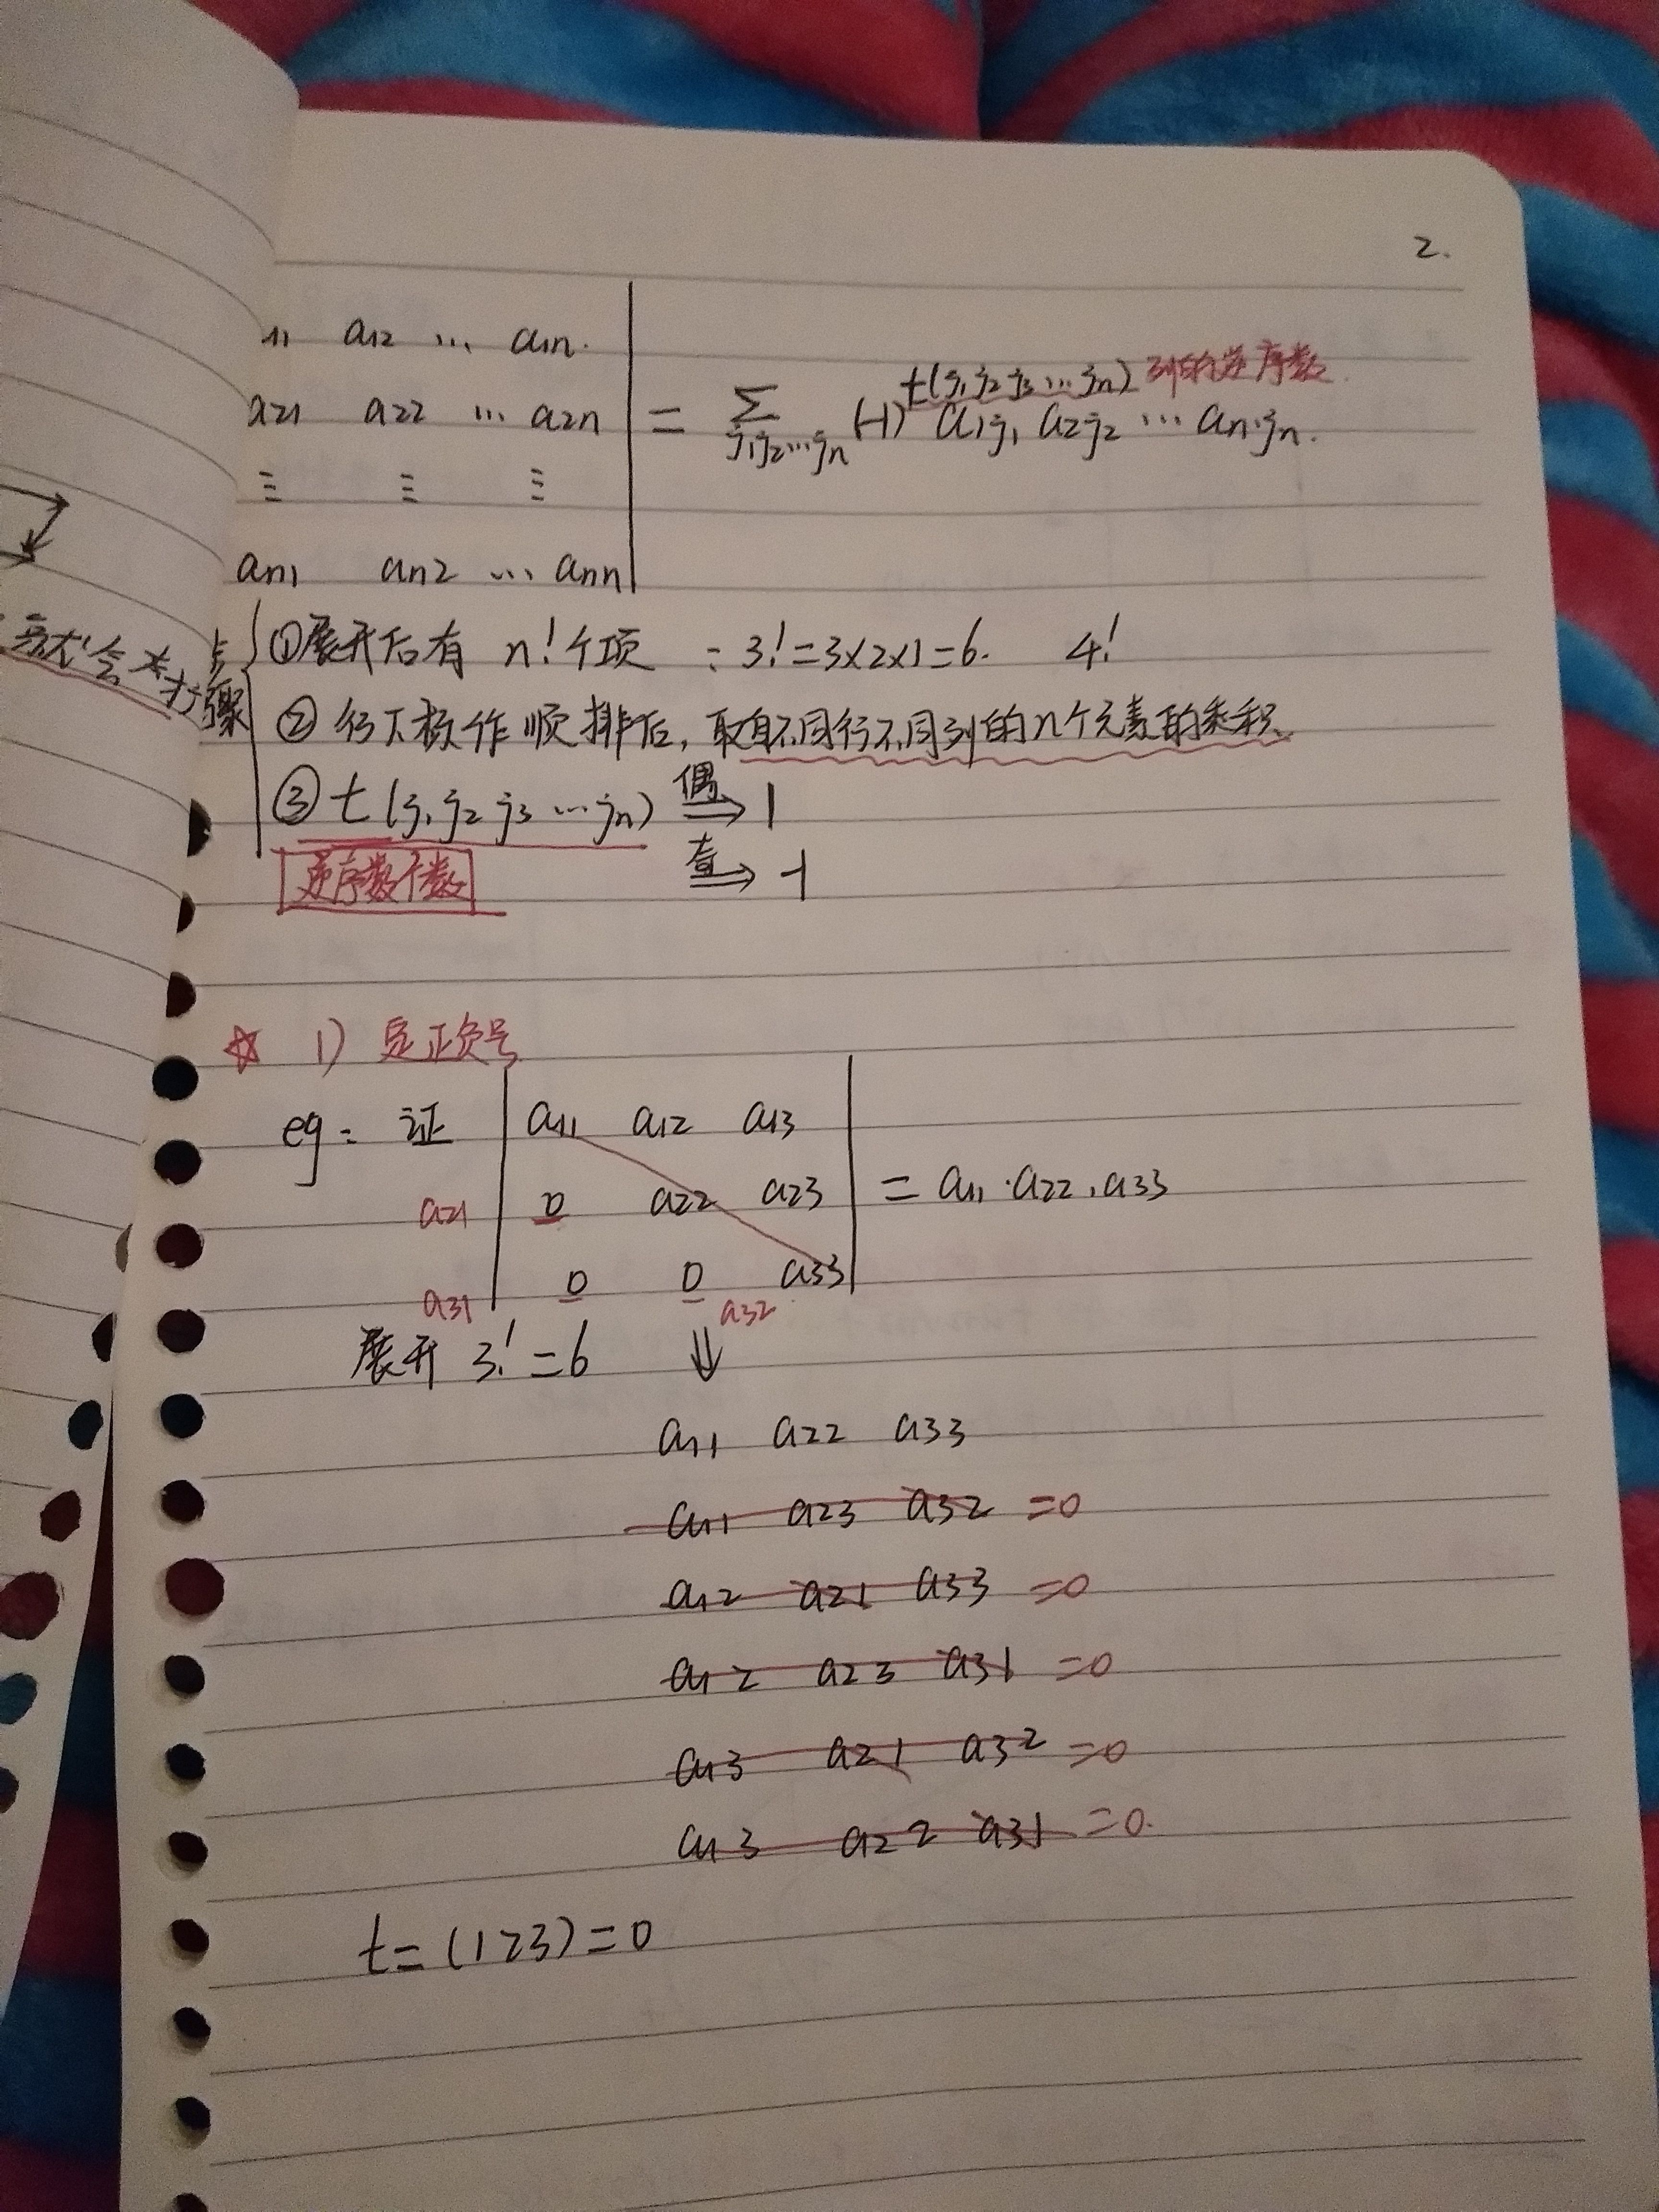 2.
a12 ... a1n.
a21 a22 ... a2n = Σ j1j2...jn (-1)^t(j1 j2 j3 ... jn) a1j1 a2j2 ... an.jn. 列的逆序数.
⋮ ⋮ ⋮
an1 an2 ... ann
骤
①展开后有 n!个项 : 3!=3×2×1=6. 4!
②行下标作顺排后,取自不同行不同列的n个元素的乘积.
③t(j1 j2 j3 ... jn) 偶⇒ 1
奇⇒ -1
逆序数个数
☆ 1) 定正负号
eg: 证 a11 a12 a13
a21 0 a22 a23 = a11·a22·a33
a31 0 0 a33
a32
展开 3!=6 ⇓
a11 a22 a33
a11 a23 a32 =0
a12 a21 a33 =0
a12 a23 a31 =0
a13 a21 a32 =0
a13 a22 a31 =0.
t=(123)=0